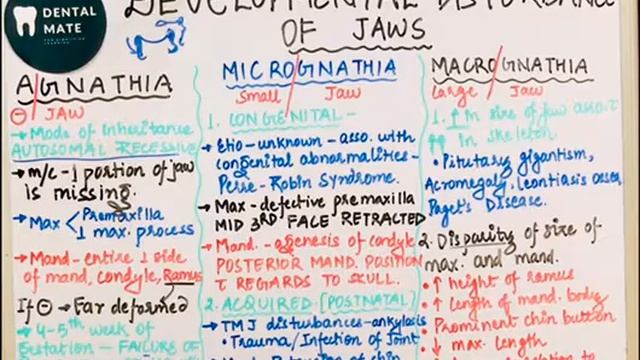 DENTAL
MATE
DEVELOPMENTAL DISTURBANCE
OF JAWS
A/GNATHIA
⊖ JAW
→ Mode of inheritance
AUTOSOMAL RECESSIVE
→ m/c - 1 portion of jaw
is missing.
→ Max < Premaxilla
1 max. process
→ Mand - entire 1 side
of mand, condyle, Ramus
If ⊖ → Ear deformed
→ 4-5th week of
Gestation - FAILURE OF
MICRO/GNATHIA
Small / Jaw
1. CONGENITAL -
→ Etio - unknown - asso. with
congenital abnormalities -
Perre-Robin Syndrome.
→ Max - defective premaxilla
MID 3RD FACE RETRACTED
→ Mand. - agenesis of condyle
POSTERIOR MAND. POSITION
T REGARDS TO SKULL.
2. ACQUIRED (POSTNATAL)
→ TMJ disturbances - ankylosis
• Trauma/Infection of Joint
of chin
MACRO/GNATHIA
Large / Jaw
1. ↑ in size of jaw asso. T
↑↑ in skeleton.
• Pitutary gigantism,
Acromegaly, Leontiasis ossea,
Paget's Disease.
2. Disparity of size of
max. and mand.
• ↑ height of ramus
• ↑ length of mand. body
• Prominent chin button
• ↓ max. length
relation to